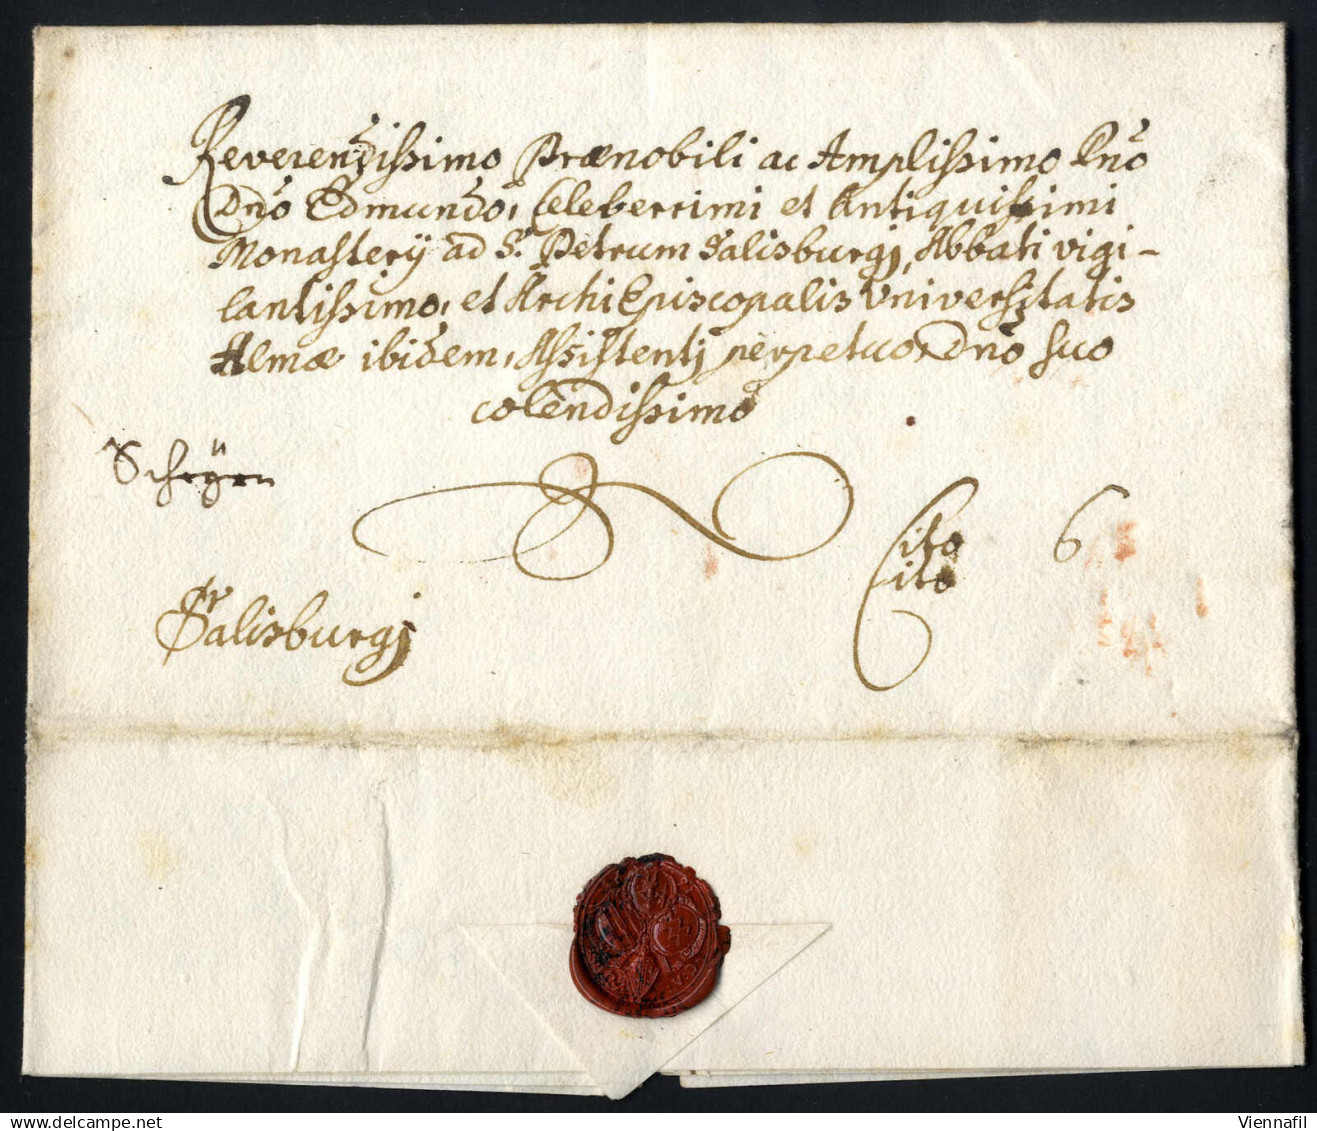 Reverendissimo Prænobili ac Amplissimo Dnõ
Dnõ Edmundo, Celeberrimi et Antiquissimi
Monasterÿ ad S. Petrum Salisburgj, Abbati vigi-
lantissimo, et ArchiEpiscopalis Universitatis
Almæ ibidem, Assistentj perpetuo, Dnõ suo
colendissimo
Scheÿrn
Cito 6
Cito
Salisburgj
Viennafil